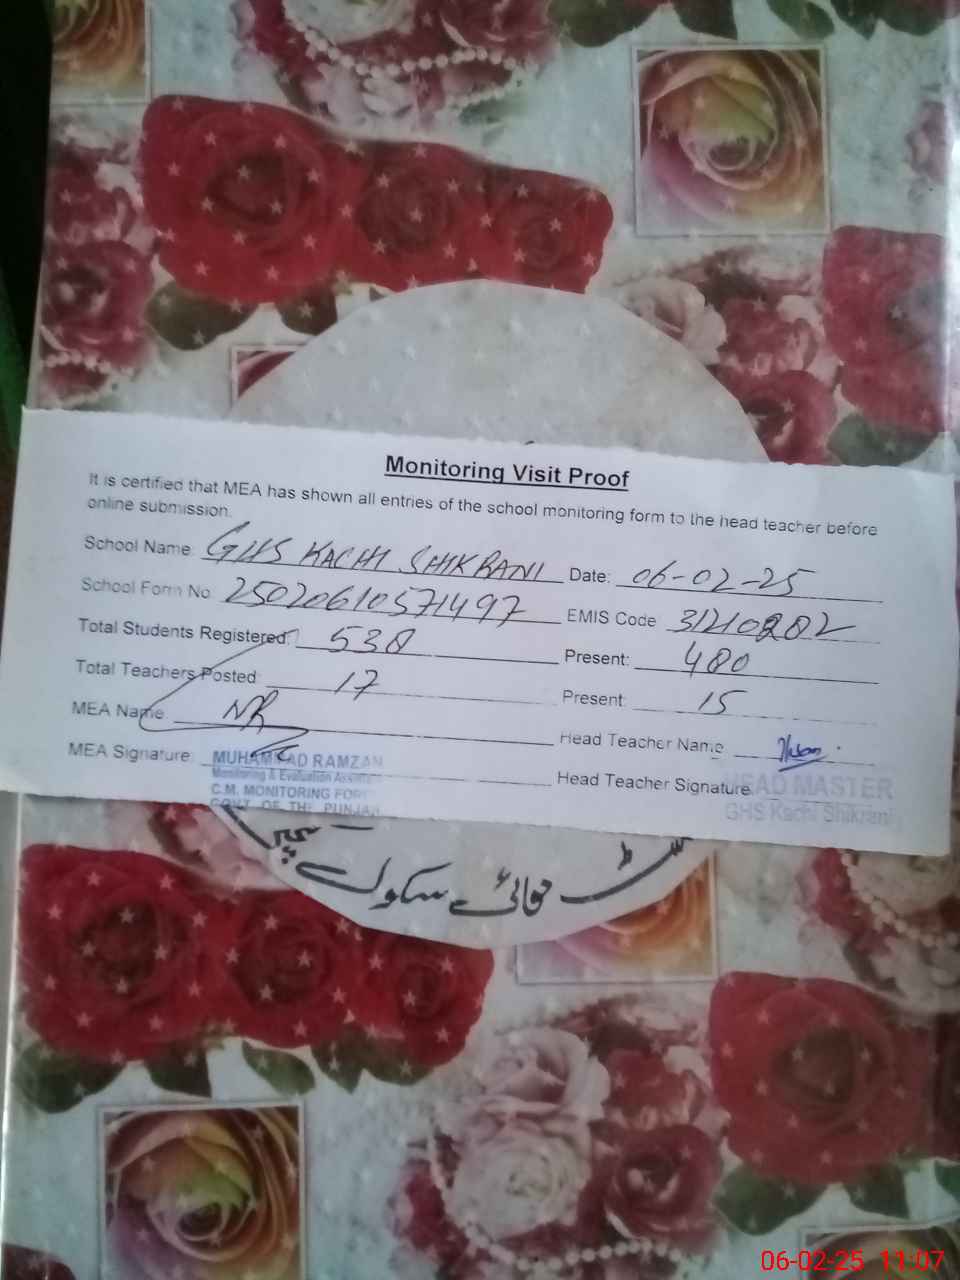 Monitoring Visit Proof
It is certified that MEA has shown all entries of the school monitoring form to the head teacher before
online submission.
School Name: GHS KACHI SHIKRANI Date: 06-02-25
School Form No. 25020610571497 EMIS Code: 31210202
Total Students Registered: 538 Present: 480
Total Teachers Posted: 17 Present: 15
MEA Name: Head Teacher Name
MEA Signature: Head Teacher Signature
MUHAMMAD RAMZAN
Monitoring & Evaluation Assistant
C.M. MONITORING FORCE
GOVT OF THE PUNJAB
HEAD MASTER
GHS Kachi Shikrani
ہائی سکول
06-02-25 11:07